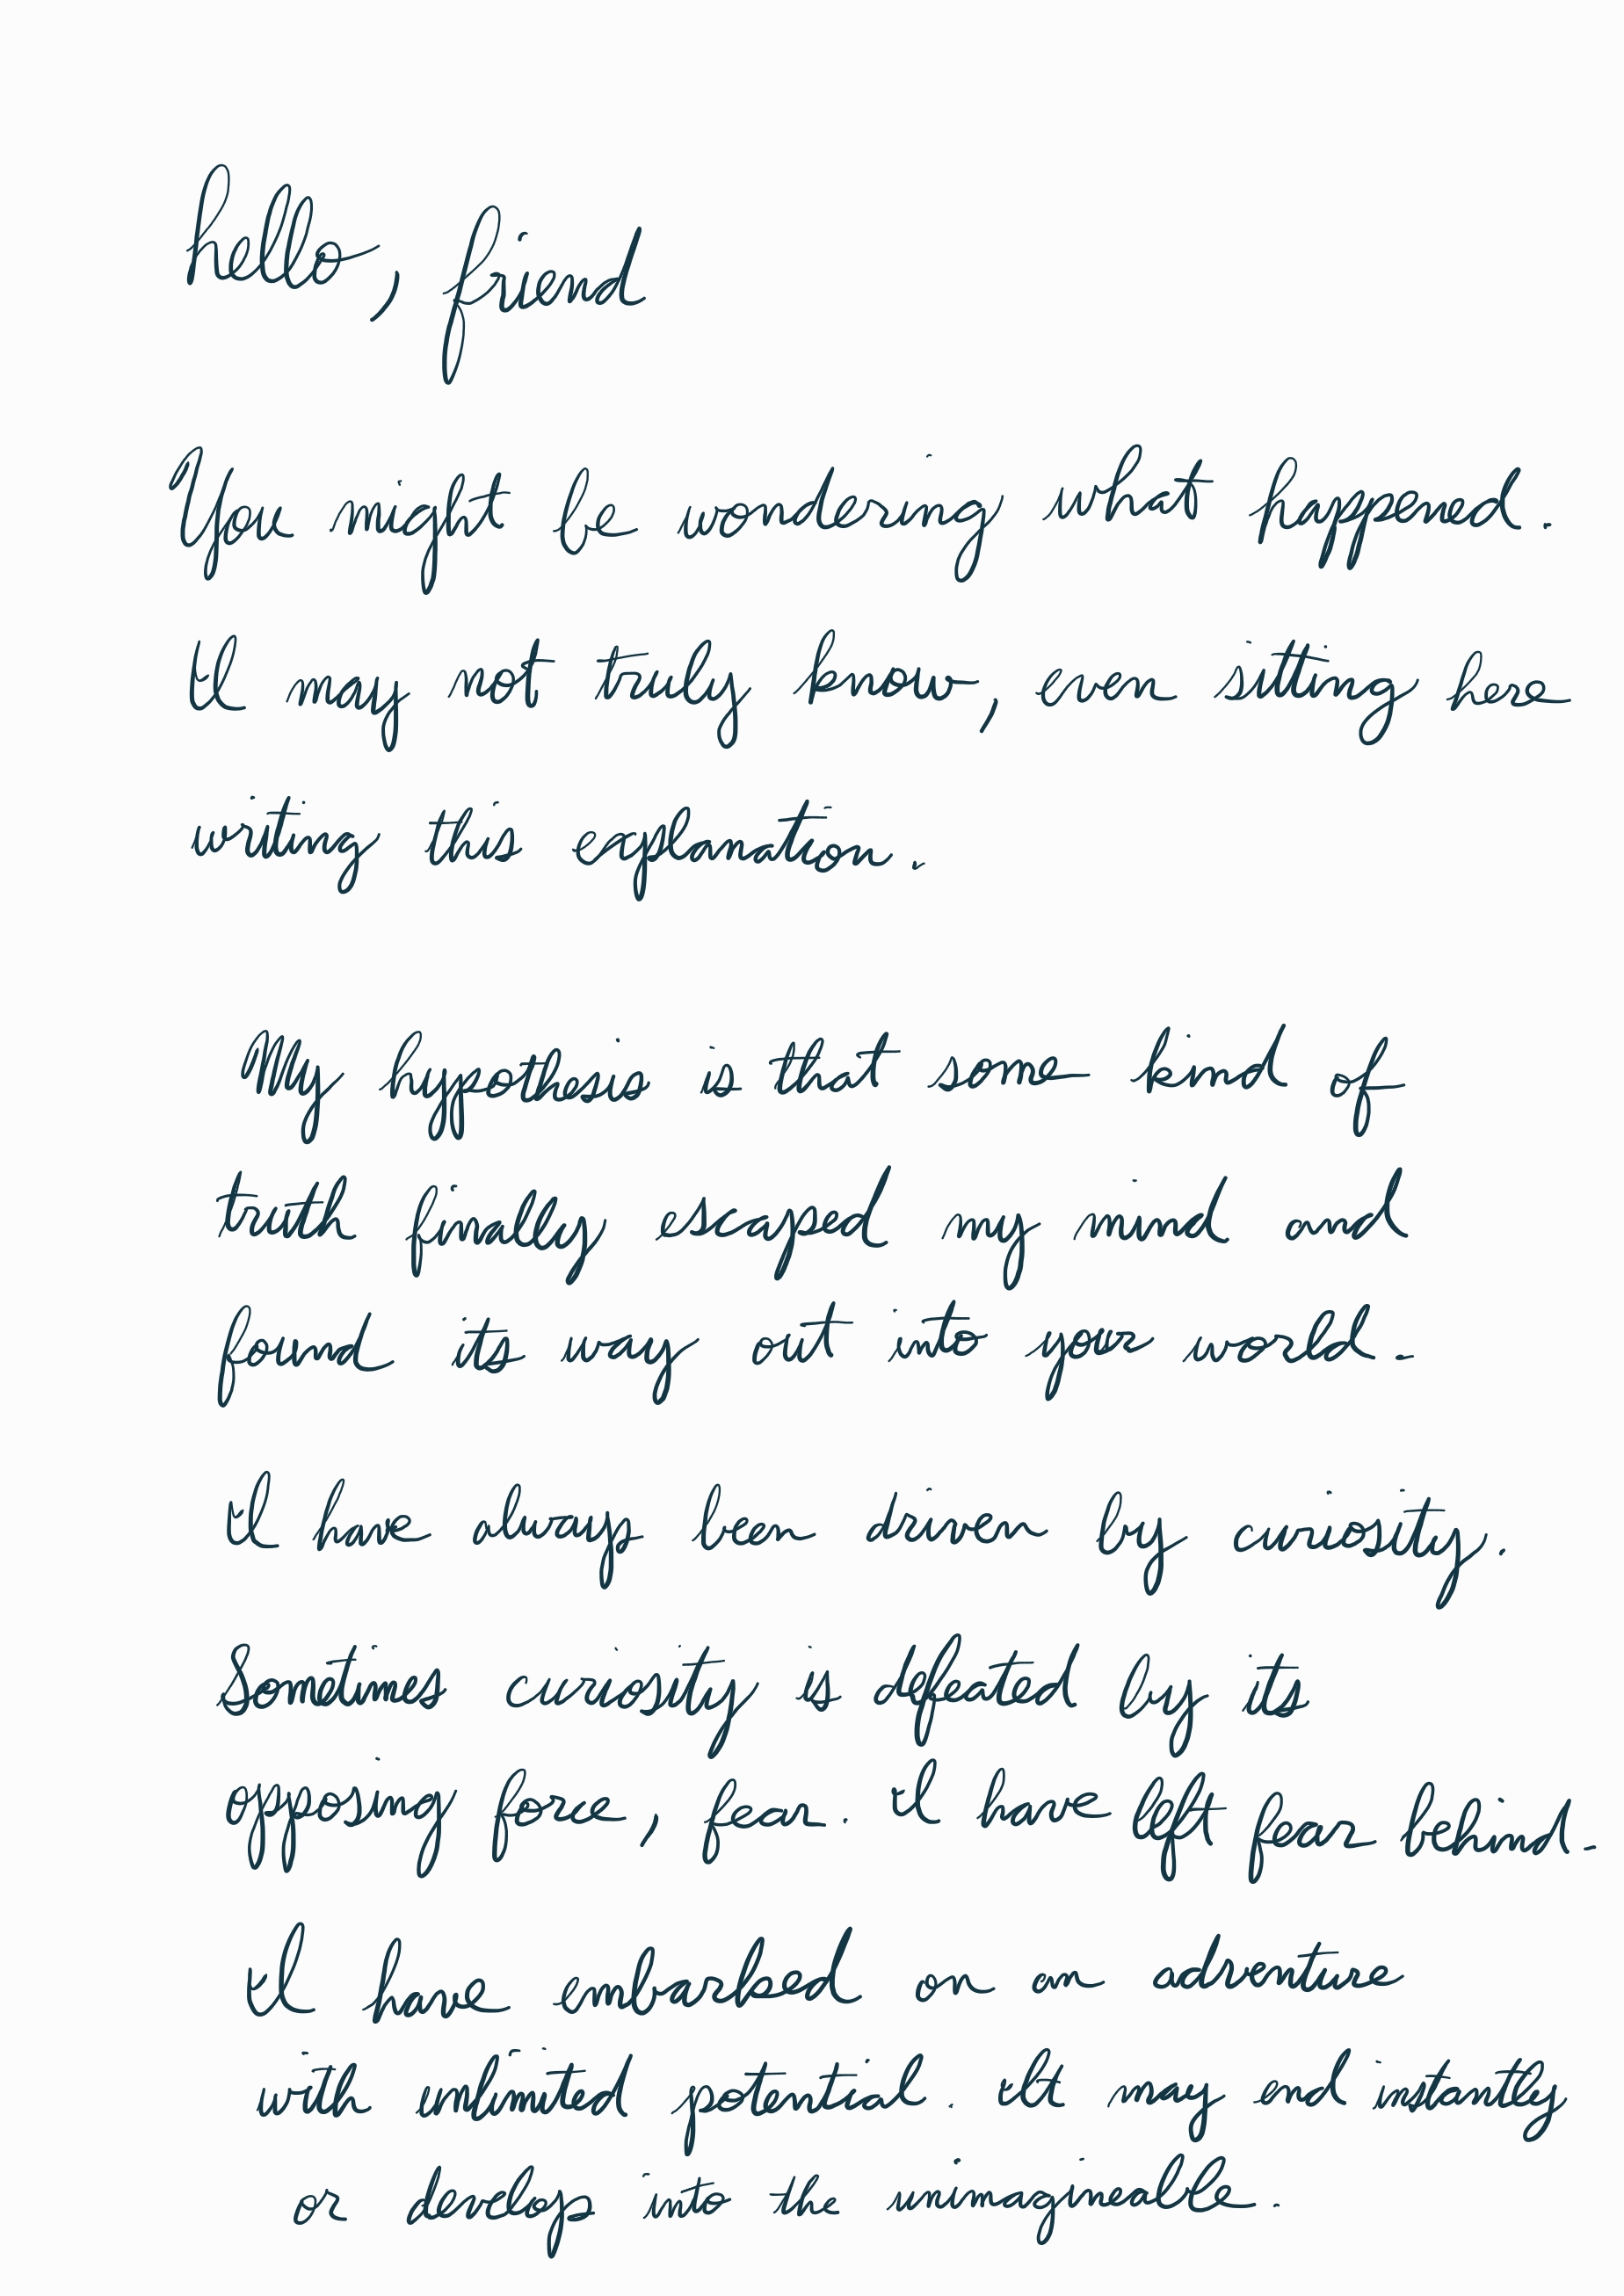 hello, friend
You might be wondering what happened.
I may not truly know, even sitting here
writing this explanation.
My hypothesis is that some kind of
truth finally escaped my mind and
found its way out into your world.
I have always been driven by curiosity.
Sometimes curiosity is defeated by its
opposing force, fear. I have left fear behind.
I have embarked on an adventure
with unlimited potential. It may end instantly
or develop into the unimagineable.